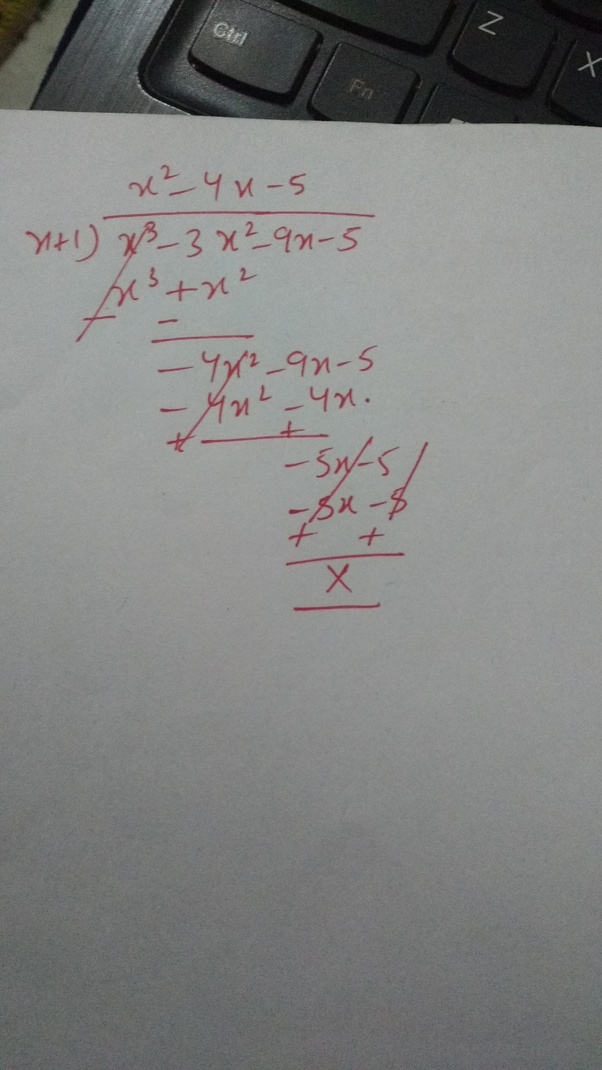 Ctrl
Fn
Z
X
x² - 4x - 5
x+1) x³ - 3x² - 9x - 5
x³ + x²
- -
- 4x² - 9x - 5
- 4x² - 4x.
+ +
- 5x - 5
- 5x - 5
+ +
X